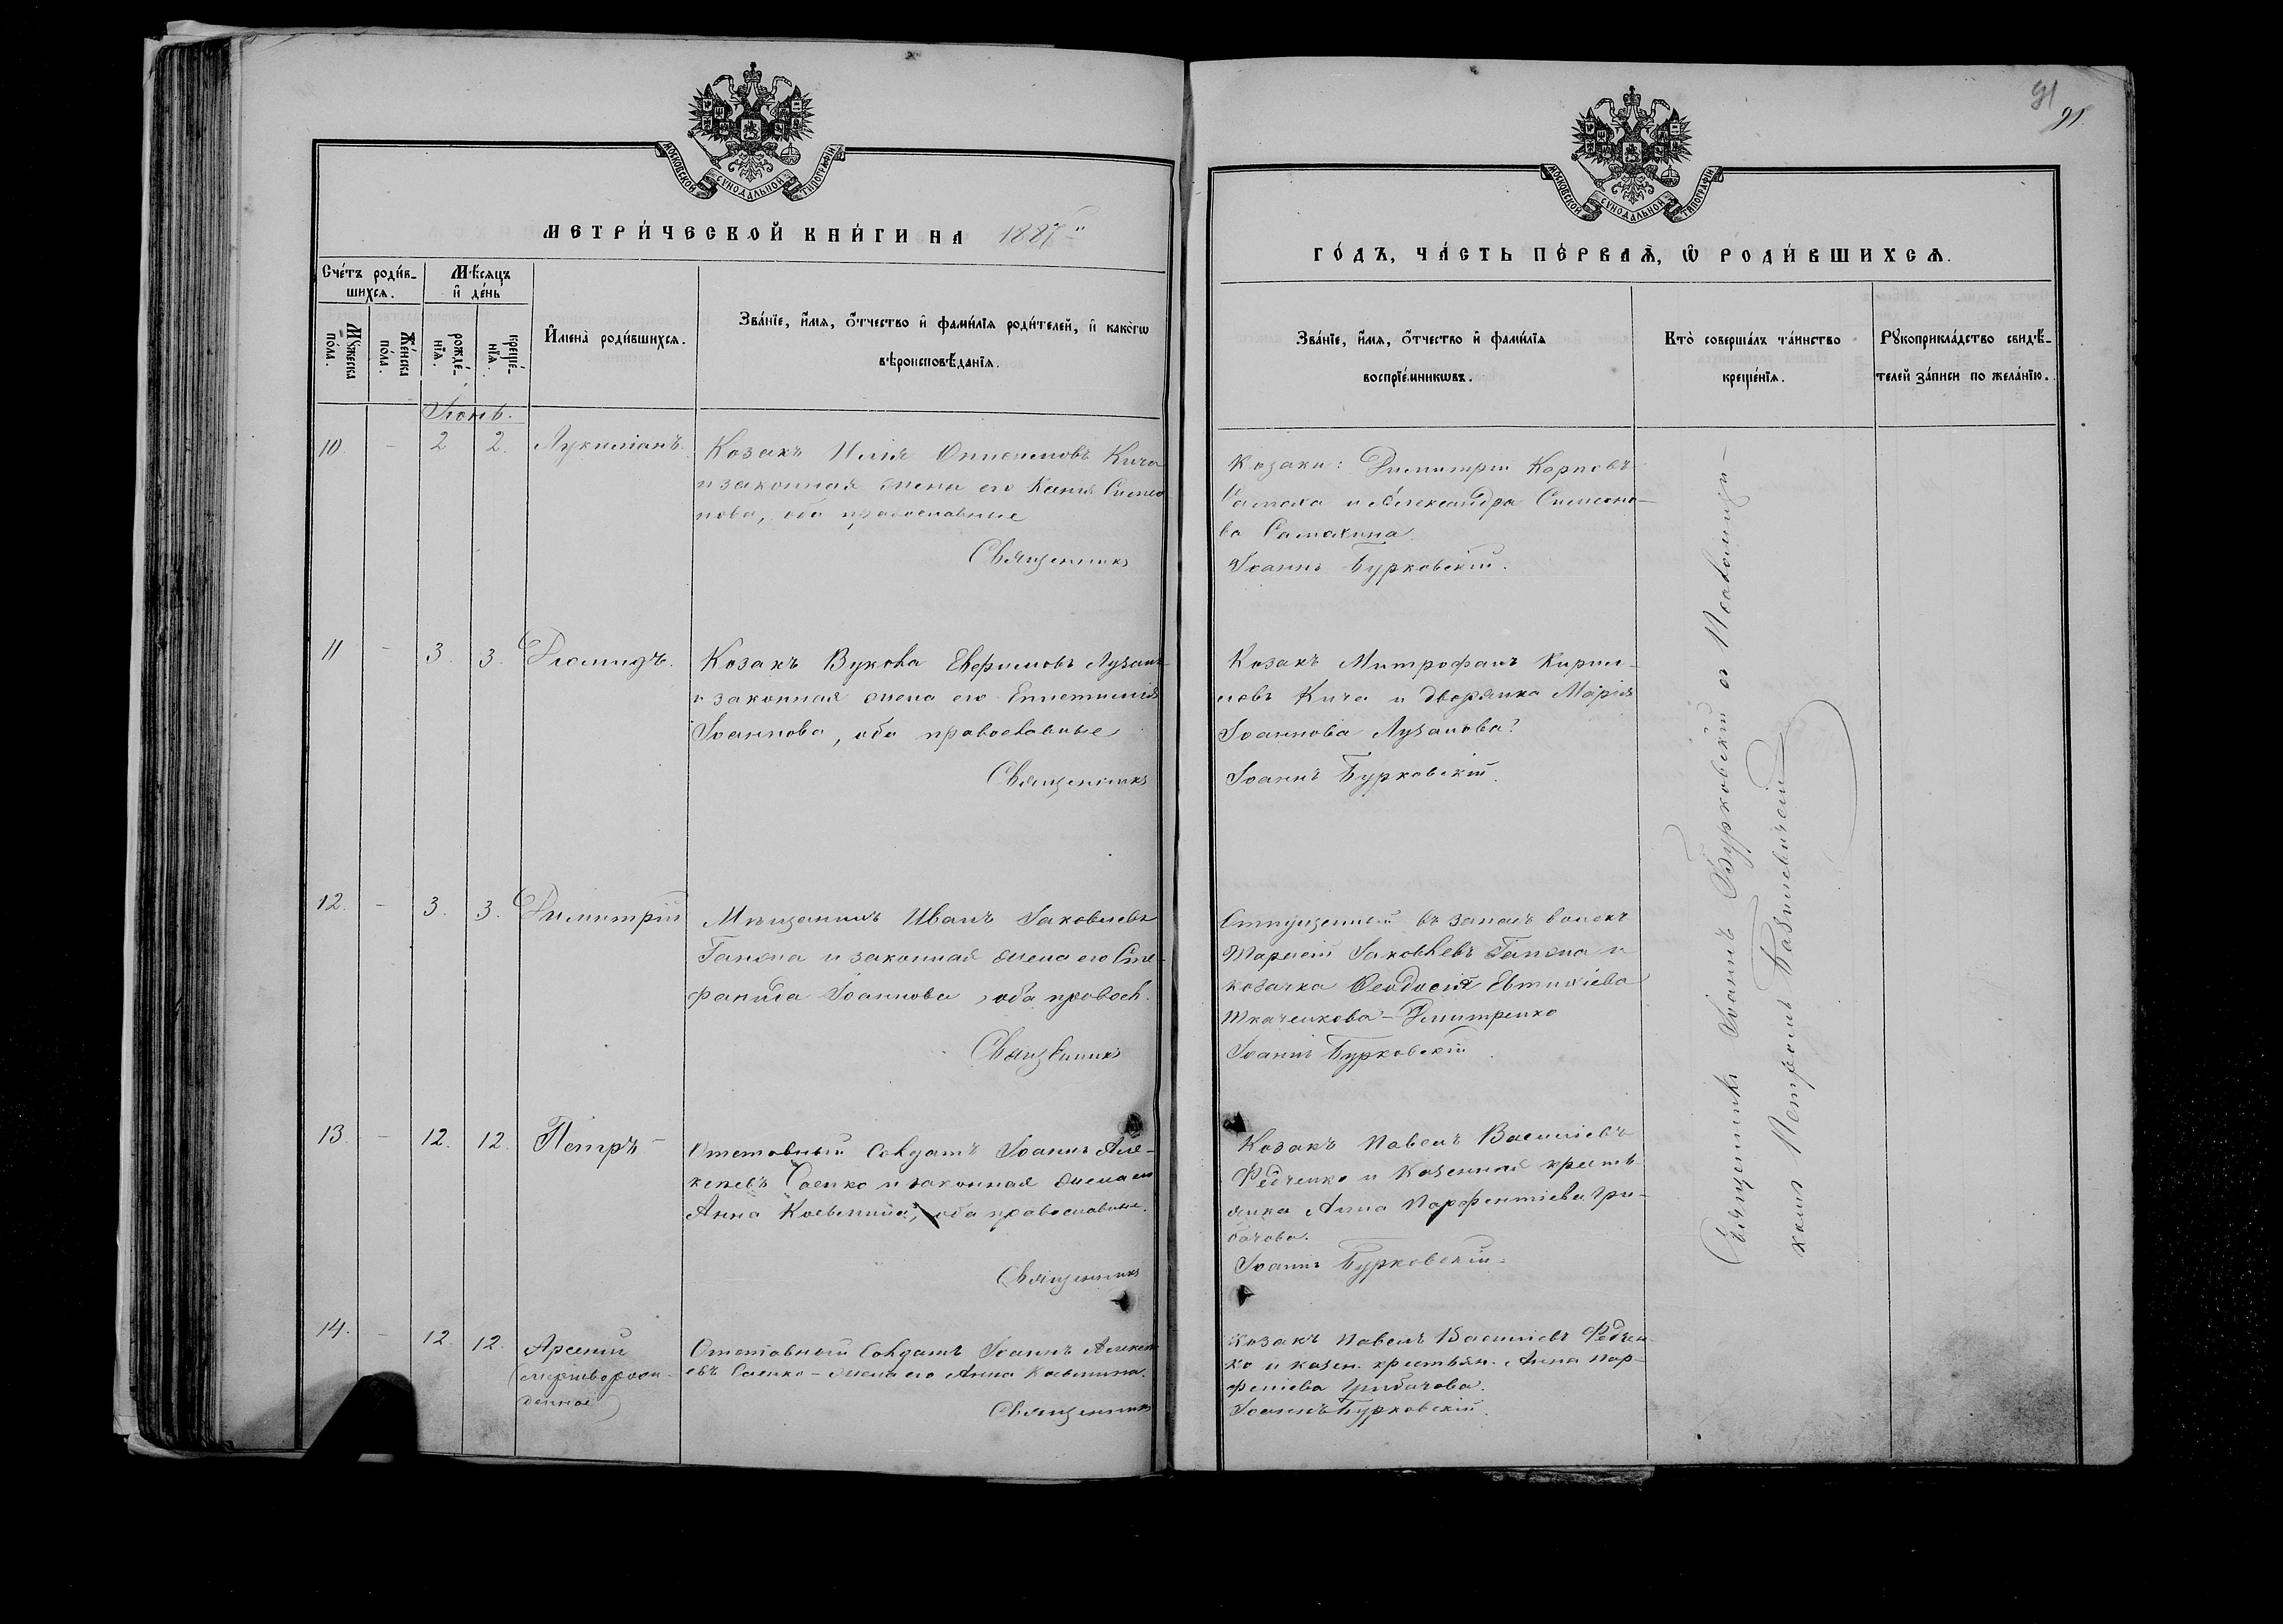 91
91.
МОСКОВСКОЙ СѴНОДАЛЬНОЙ ТИПОГРАФІИ
МЕТРИ́ЧЕСКОЙ КНИ́ГИ НА 1887
Сче́тъ роди́в-
шихся.
Мѣ́сяцъ
и҆ де́нь
Мꙋ́жеска
по́ла.
Же́нска
по́ла.
рожде́-
нїѧ.
креще́-
нїѧ.
И҆мена̀ роди́вшихся.
Зва́нїе, и҆́мѧ, ѻ҆́тчество и҆ фами́лїѧ роди́телей, и҆ како́гѡ
вѣроисповѣ́данїѧ.
Іюнь.
10. - 2 2. Лукиліанъ.
Козакъ Илія Кича
и законная жена его Ксенія Симео
нова, оба православные
Священникъ
11 - 3. 3. Діомидъ.
Козакъ Вукола Евфимовъ
и законная жена его Епистимія
Іоаннова, оба православные
Священникъ
12. - 3. 3. Димитрій
Мѣщанинъ Иванъ Іаковлевъ
Гапона и законная жена его Сте-
фанида Іоаннова, оба правосл.
Священникъ
13. - 12. 12. Петръ -
Отставный солдатъ Іоаннъ Але-
ксѣевъ Саенко и законная жена его
Анна Косьмина, оба православные.
Священникъ
14. - 12 12. Арсеній
(мертворож-
денное)
Отставный солдатъ Іоаннъ Алексѣ
евъ Саенко - жена его Анна Косьмина.
Священникъ
МОСКОВСКОЙ СѴНОДАЛЬНОЙ ТИПОГРАФІИ
ГО́ДЪ, ЧА́СТЬ ПЕ́РВАѦ, Ѡ҆ РОДИ́ВШИХСѦ.
Зва́нїе, и҆́мѧ, ѻ҆́тчество и҆ фами́лїѧ
воспрїе́мникѡвъ.
Кто̀ соверша́лъ та́инство
креще́нїѧ.
Рꙋкоприкла́дство свидѣ́-
телей за́писи по жела́нїю.
Козаки: Димитрій Карповъ
Самаха и Александра Симеоно-
ва Самахина
Іоаннъ Бурковскій.
Козакъ Митрофанъ Кирил-
ловъ Кича и дворянка Марія
Іоаннова Лузанова.
Іоаннъ Бурковскій.
Отпущенный въ запасъ войскъ
Іаковлевъ Гапона и
козачка Феодосія Евтихіева
Ткаченкова - Дмитренко
Іоаннъ Бурковскій
Козакъ Павелъ Васильевъ
Федченко и казенная кресть-
янка Анна Парфентіева Гри-
бачова.
Іоаннъ Бурковскій.
Козакъ Павелъ Васильевъ Федчен-
ко и казен. крестьян. Анна Пар-
феніева Грибачова.
Іоаннъ Бурковскій.
Священникъ Іоаннъ Бурковскій съ Псаломщи-
комъ Петромъ Базилевичемъ